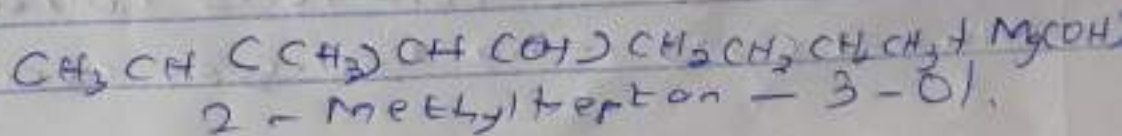 CH3 CH (CH3) CH (OH) CH2 CH2 CH2 CH3 + Mg(OH)
2 - Methylheptan - 3 - Ol.